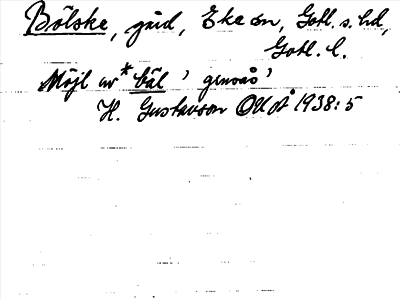 Bölske, gård, Eke sn, Gotl. s. hd,
Gotl. l.
Möjl av *bäl 'grusås'
H. Gustavson OUÅ 1938:5